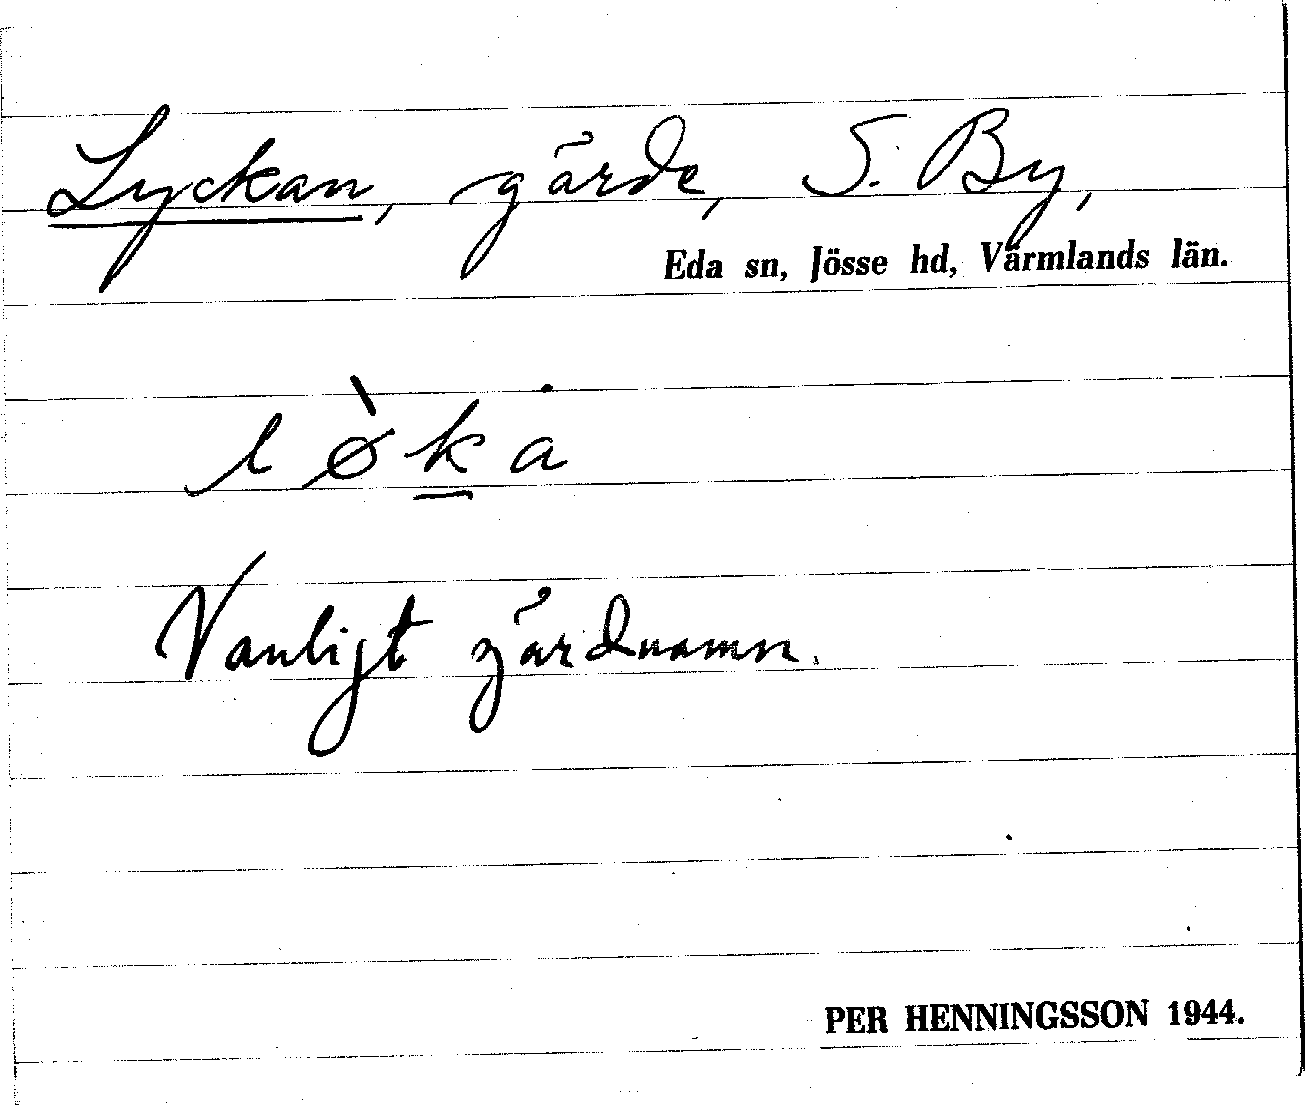 Lyckan, gärde, S. By,
Eda sn, Jösse hd, Värmlands län.
lø̀k̲ȧ
Vanligt gärdnamn.
PER HENNINGSSON 1944.